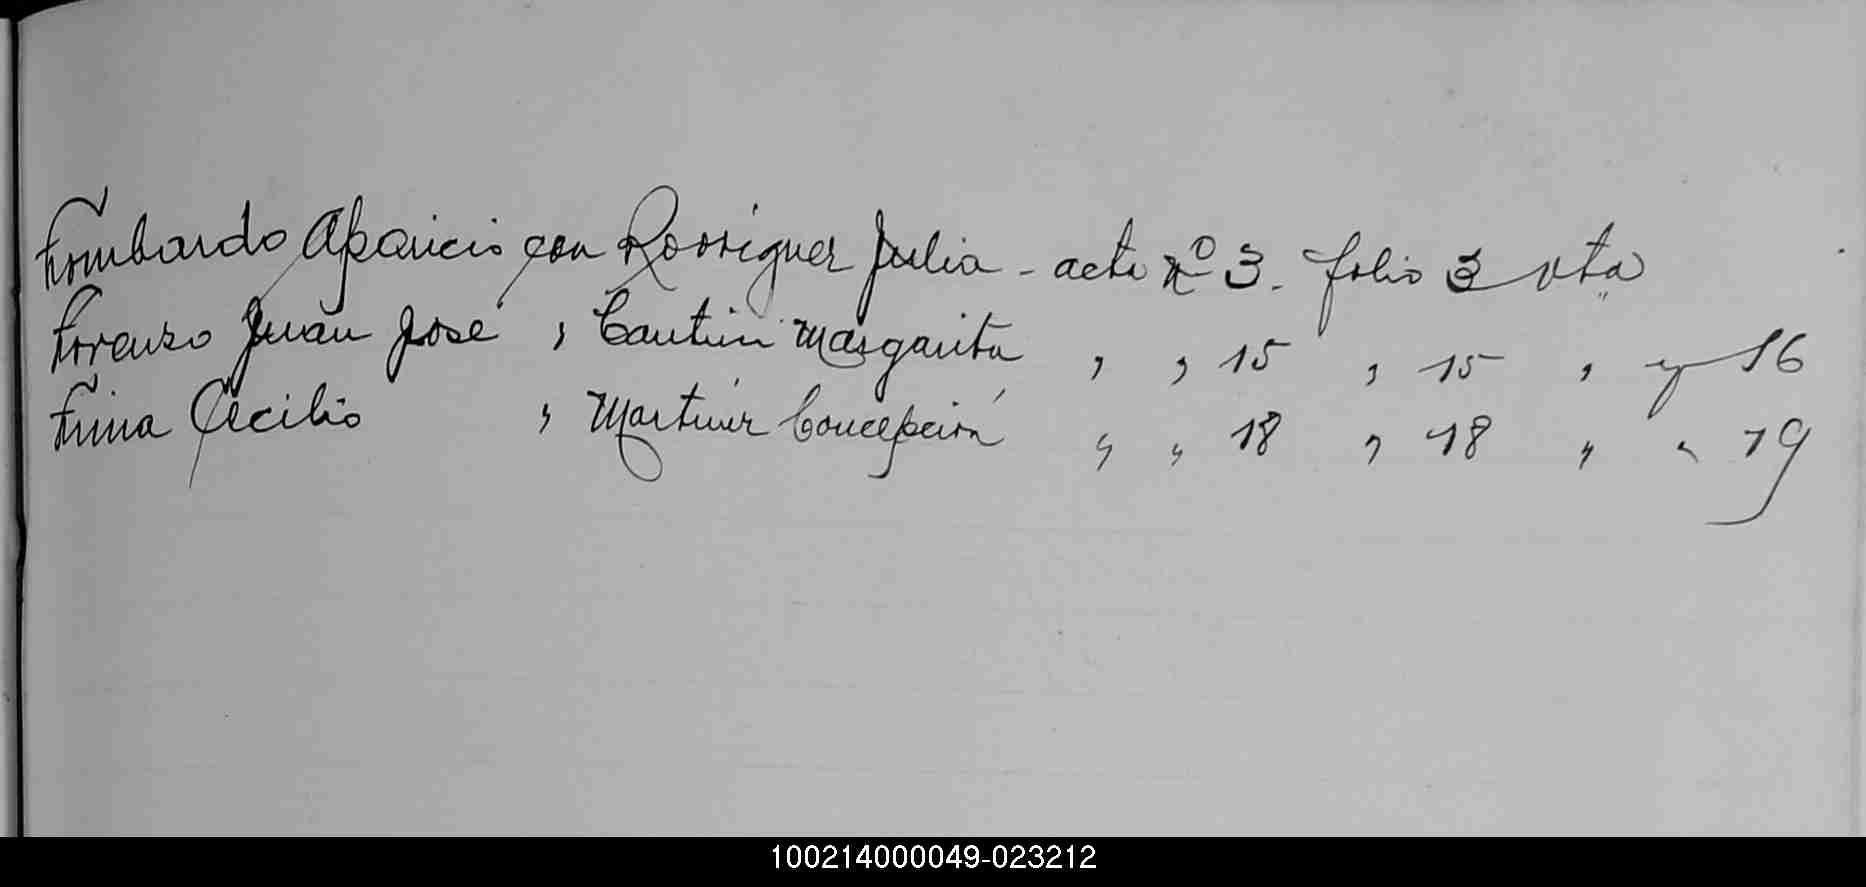 Lombardo Aparicio con Rodriguez Julia - acta nº 3. folio 3 vta
Lorenzo Juan José , Cantun Margarita , , 15 , 15 , y 16
Luna Cecilio , Martinez Concepción " " 18 , 18 " " 19
100214000049-023212